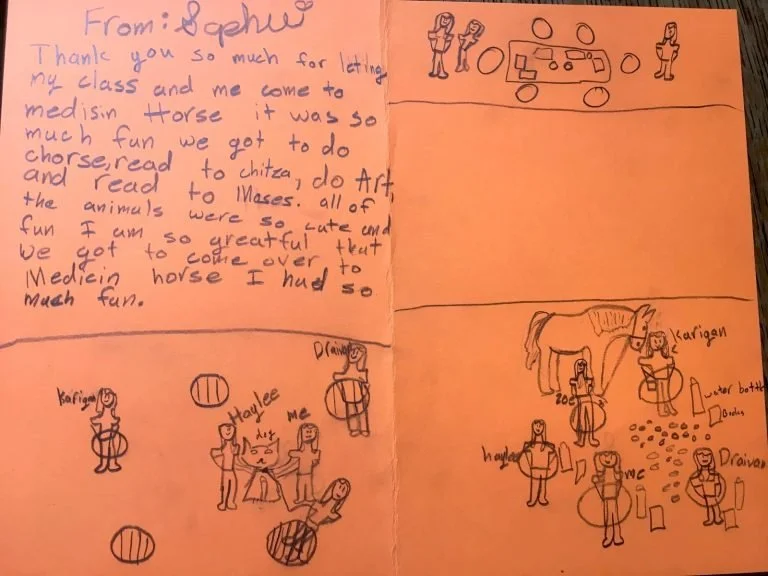 From: Sophie
Thank you so much for leting
my class and me come to
medisin Horse it was so
much fun we got to do
chorse, read to chitza, do Art,
and read to Moses. all of
the animals were so cute and
fun I am so greatful that
we got to come over to
Medicin horse I had so
much fun.
Draivan
Karigan
Haylee
me
dog
Karigan
zoe
water bottle
Books
haylee
me
Draivan